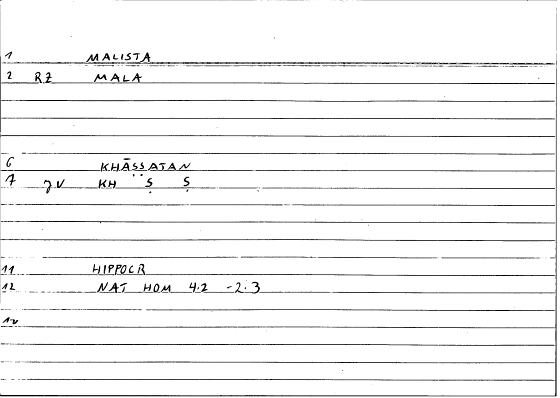 1 MALISTA
2 RZ MALA
6 KHĀSSATAN
7 JV KH Ṣ Ṣ
11 HIPPOCR
12 NAT HOM 4.2 -2.3